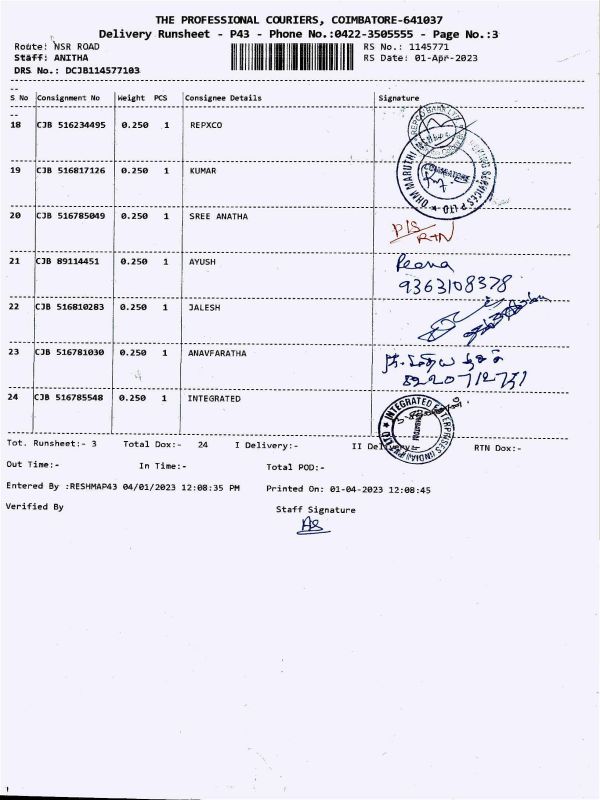 THE PROFESSIONAL COURIERS, COIMBATORE-641037
Delivery Runsheet - P43 - Phone No.:0422-3505555 - Page No.:3
Route: NSR ROAD RS No.: 1145771
Staff: ANITHA RS Date: 01-Apr-2023
DRS No.: DCJB114577103
--
S No Consignment No Weight PCS Consignee Details Signature
--
18 CJB 516234495 0.250 1 REPXCO
REPCO BANK LTD
19 CJB 516817126 0.250 1 KUMAR
OHM MARUTHI SERVICES P LTD
COIMBATORE
20 CJB 516785049 0.250 1 SREE ANATHA P/S
RTN
21 CJB 89114451 0.250 1 AYUSH
9363108378
22 CJB 516810283 0.250 1 JALESH
23 CJB 516781030 0.250 1 ANAVFARATHA
24 CJB 516785548 0.250 1 INTEGRATED
INTEGRATED ENTERPRISES (INDIA) PVT LTD
Tot. Runsheet:- 3 Total Dox:- 24 I Delivery:- II Delivery:- RTN Dox:-
Out Time:- In Time:- Total POD:-
Entered By :RESHMAP43 04/01/2023 12:08:35 PM Printed On: 01-04-2023 12:08:45
Verified By Staff Signature